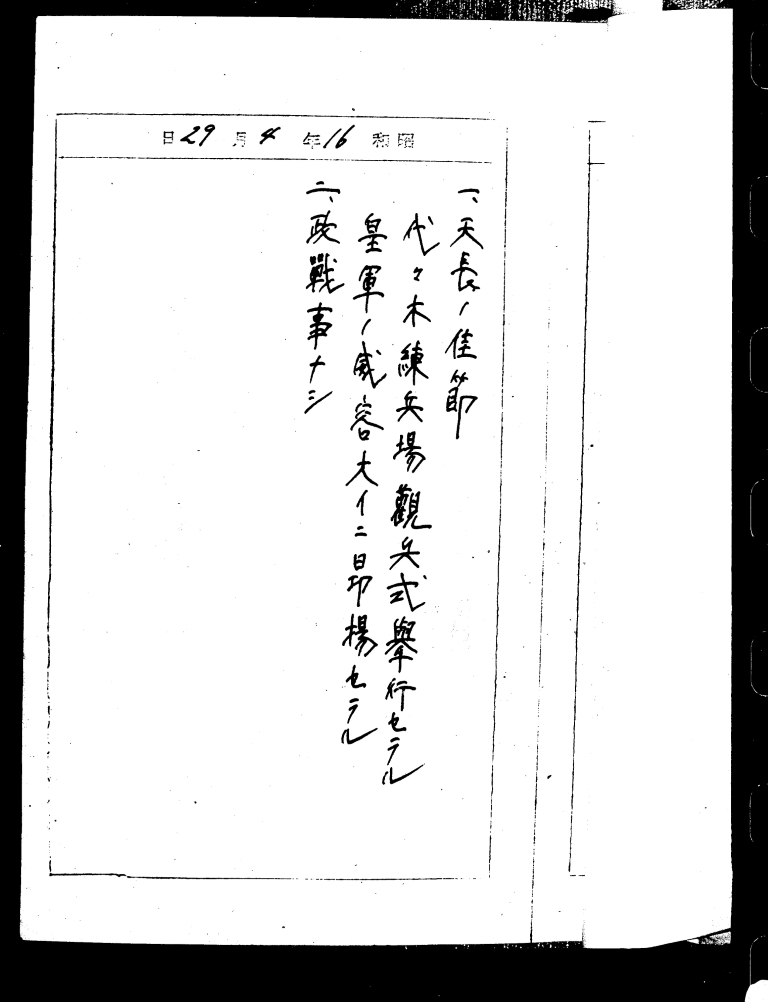 昭和16年4月29日
一、天長ノ佳節
代々木練兵場觀兵式擧行セラル
皇軍ノ威容大イニ昂揚セラル
二、政戰事ナシ